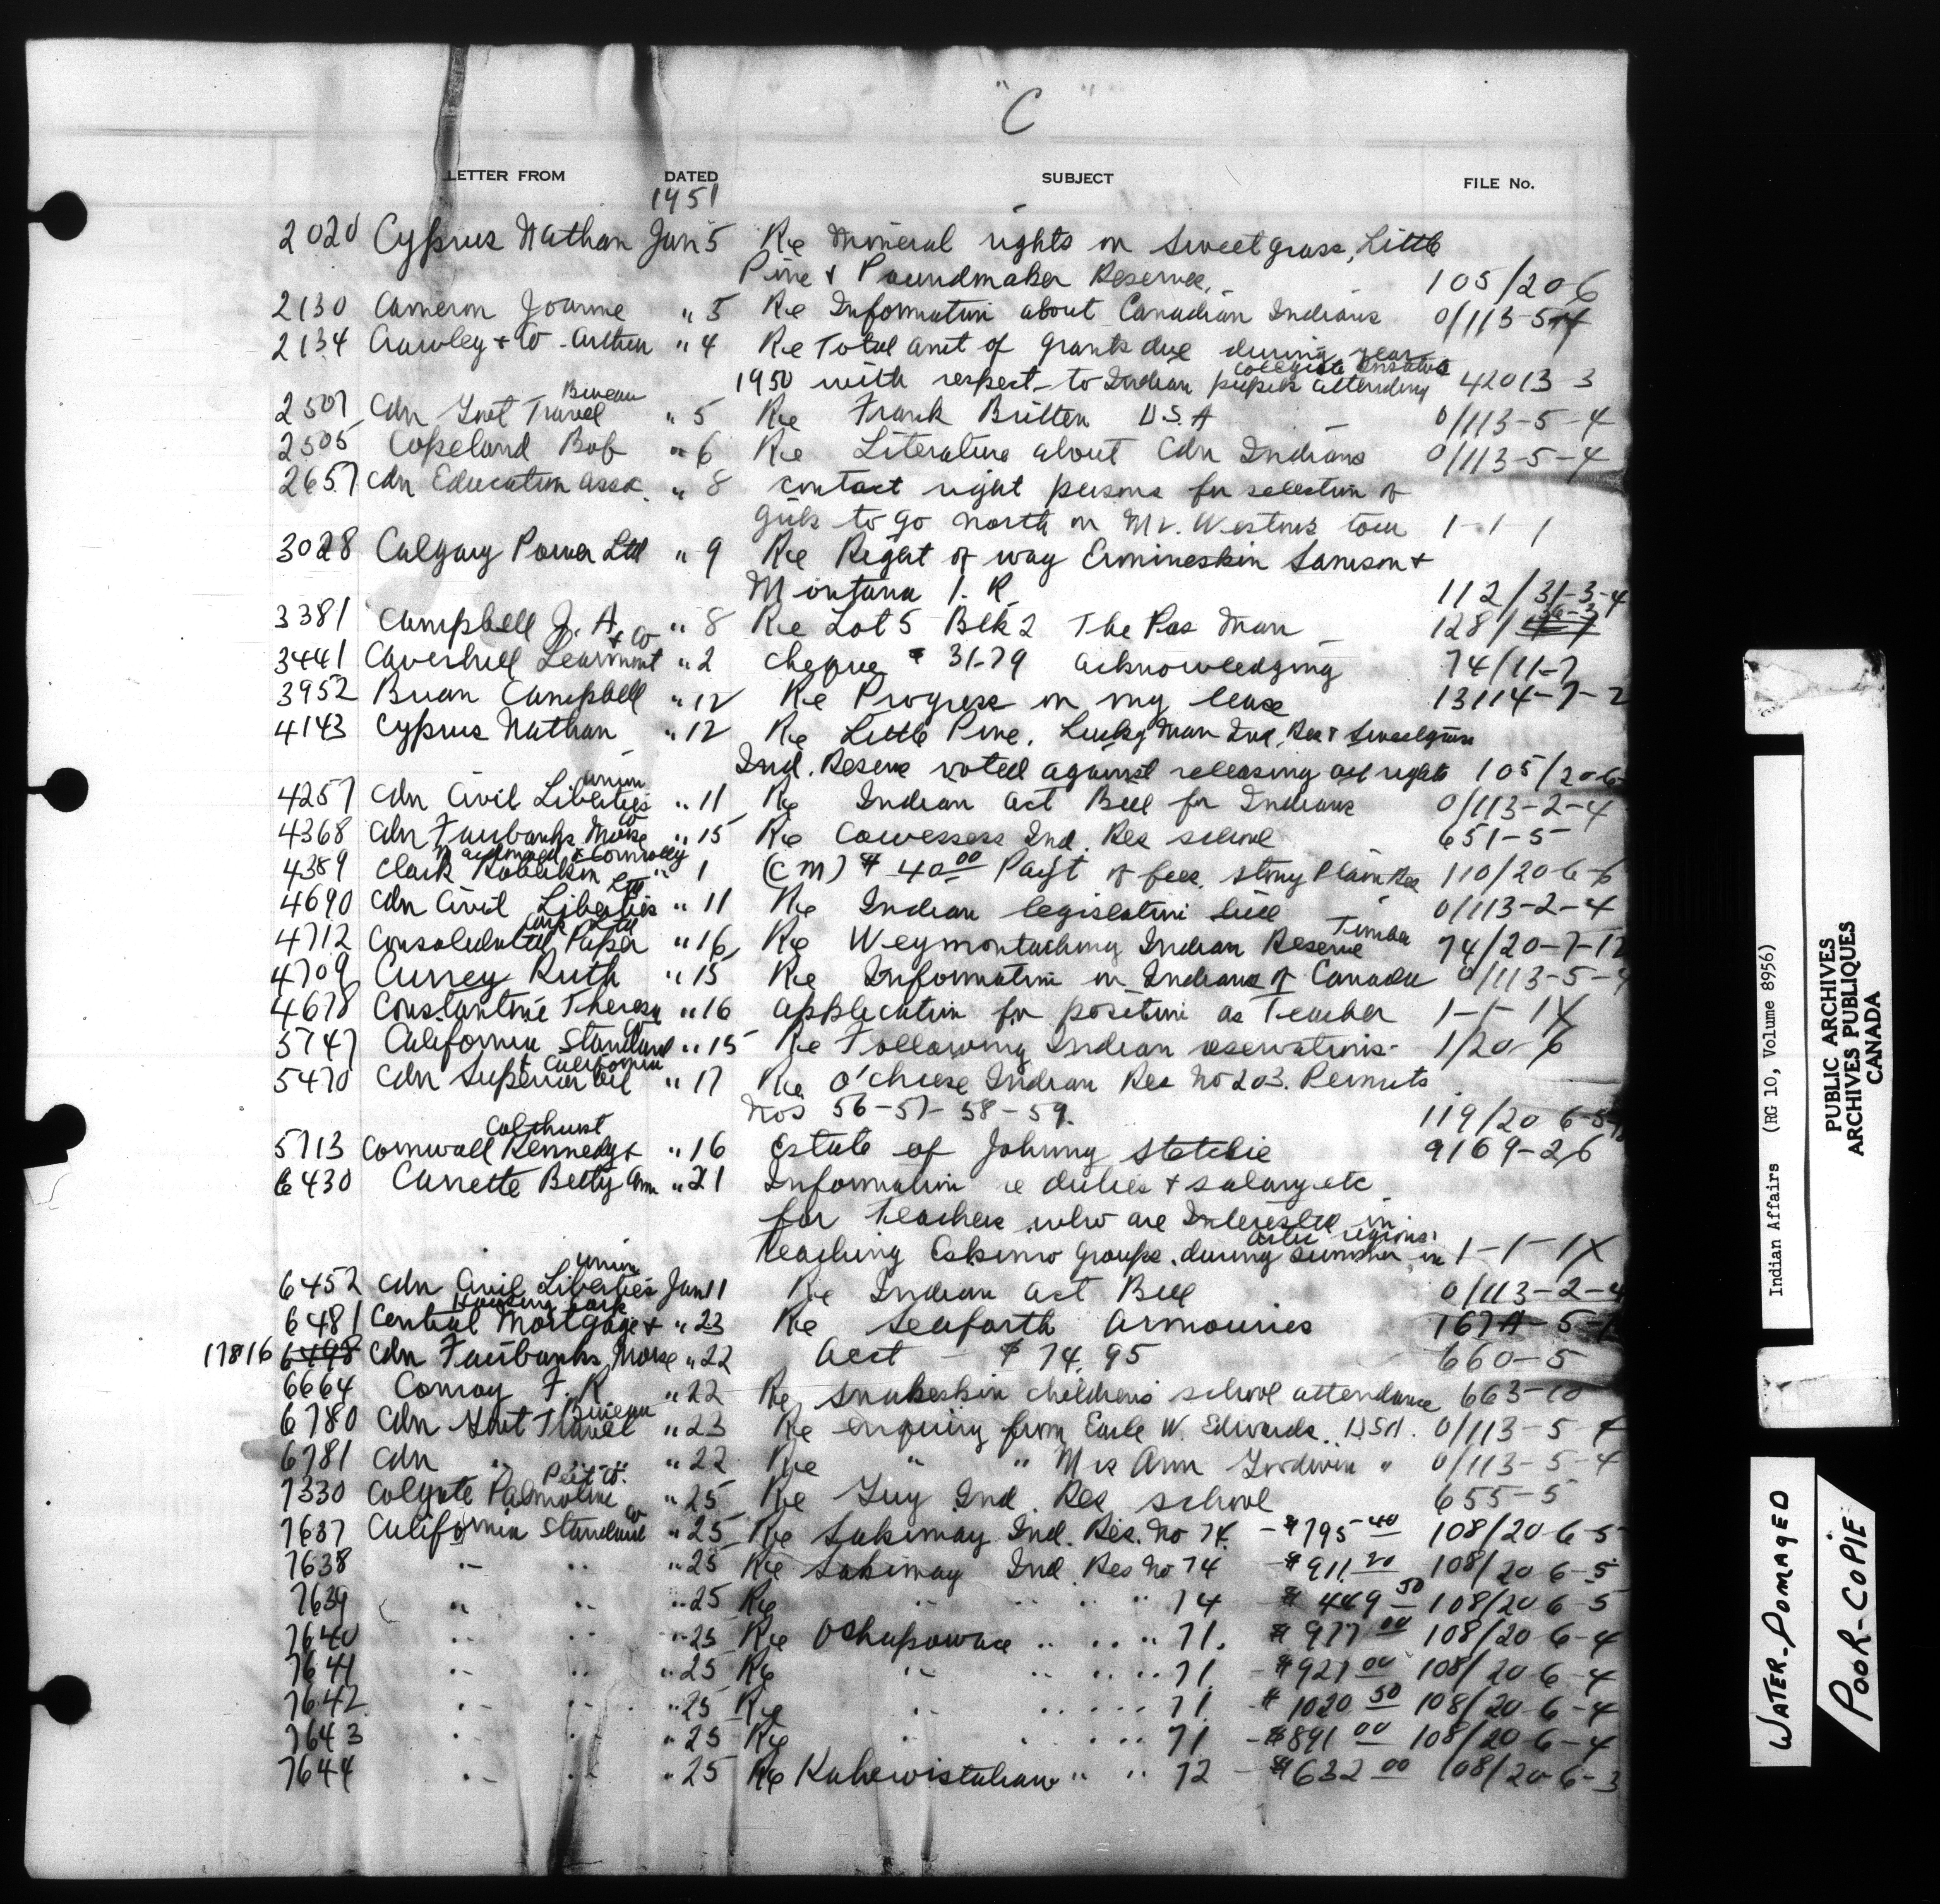 "C"
LETTER FROM DATED SUBJECT FILE No.
1951
2020 Cyprus Nathan Jan 5 Re Mineral rights on Sweetgrass, Little
Pine & Poundmaker Reserves. 105/20 6
2130 Cameron Joanne " 5 Re Information about Canadian Indians 0/113-5-4
2134 Crawley & Co - Arthur " 4 Re Total amt of grants due during year
1950 with respect to Indian pupils attending Collegiate Institute 42013-3
2507 Cdn Govt Travel Bureau " 5 Re Frank Britten U.S.A 0/113-5-4
2505 Copeland Bob " 6 Re Literature about Cdn Indians 0/113-5-4
2657 Cdn Education Assoc. " 8 contact right persons for selection of
girls to go north on Mr. Westons tour 1-1-1
3028 Calgary Power Ltd " 9 Re Right of way Ermineskin Samson &
Montana I. R. 112/31-3-4
3381 Campbell J. A. " 8 Re Lot 5 Blk 2 The Pas Man 128/
3441 Caverhill Learmont & Co " 2 cheque $ 31.79 acknowledging 74/11-7
3952 Brian Campbell " 12 Re Progress on my lease 13114-7-2
4143 Cyprus Nathan " 12 Re Little Pine, Lucky Man Ind. Res & Sweetgrass
Ind. Reserve voted against releasing oil rights 105/20-6
4257 Cdn Civil Liberties Union " 11 Re Indian Act Bill for Indians 0/113-2-4
4368 Cdn Fairbanks Morse Co " 15 Re Cowessess Ind. Res school 651-5
4389 Clark Robertson Macdonald & Connolly " 1 (C M) $ 40.00 Pay't of fees. Stony Plain Res 110/20-6-6
4690 Cdn Civil Liberties " 11 Re Indian legislation bill 0/113-2-4
4712 Consolidated Paper Corp Ltd " 16 Re Weymontaching Indian Reserve Timber 74/20-7-12
4709 Currey Ruth " 15 Re Information on Indians of Canada 0/113-5-4
4678 Constantine Theresa " 16 application for position as Teacher 1-1-1X
5747 California Standard Co " 15 Re Following Indian reservations- 1/20-6
5470 Cdn Superior Oil & California " 17 Re O'chiese Indian Res No 203. Permits
Nos 56-57-58-59. 119/20 6-5
5713 Cornwall Kennedy & Colthurst " 16 Estate of Johnny Stetchie 9169-26
6430 Carrette Betty Ann " 21 Information re duties & salary etc
for teachers who are Interested in
teaching Eskimo groups. during summer in artic regions. 1-1-1X
6452 Cdn Civil Liberties Union Jan 11 Re Indian Act Bill 0/113-2-4
6481 Central Mortgage & Housing Corp " 23 Re Seaforth Armouries 167A-5-1
17816 6498 Cdn Fairbanks Morse " 22 Acct - $ 74.95 660-5
6664 Conroy F. R " 22 Re Snakeskin children's school attendance 663-10
6780 Cdn Govt Travel Bureau " 23 Re enquiry from Earle W. Edwards. USA. 0/113-5-4
6781 Cdn " " " 22 Re " " Mrs Ann Goodwin " 0/113-5-4
7330 Colgate Palmolive Peet Co. " 25 Re Guy Ind. Res school 655-5
7637 California Standard Co " 25 Re Sakimay Ind. Res. No 74. - $795 40 108/20-6-5
7638 " " " 25 Re Sakimay Ind. Res No 74 - $911.20 108/20 6-5
7639 " " " 25 Re " " " " 74 - $ 449 50 108/20 6-5
7640 " " " 25 Re Ochapowace " " " 71. $ 977 00 108/20 6-4
7641 " " " 25 Re " " " " 71 - $927 00 108/20 6-4
7642 " " " 25 Re " " " " 71. $ 1020 50 108/20-6-4
7643 " " " 25 Re " " " " 71 - $891 00 108/20-6-4
7644 " " " 25 Re Kahewistahaw " " 72 - $632 00 108/20-6-3
Indian Affairs (RG 10, Volume 8956)
PUBLIC ARCHIVES
ARCHIVES PUBLIQUES
CANADA
WATER-DOMAGED
POOR-COPIE